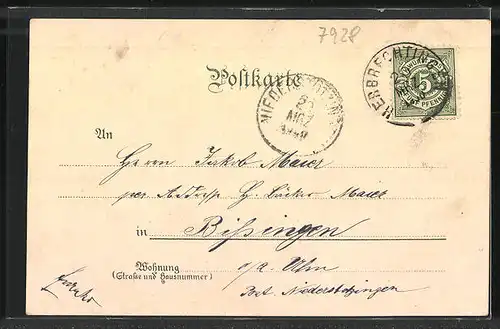 7928
HERBRECHTINGEN
5
FÜNF PFENNIG
Postkarte
NIEDERSTOTZINGEN
MRZ
An
Herrn Jakob Maier
per Addresse H. Bäcker Maier
in Bißingen
Wohnung
(Straße und Hausnummer)
o/a. Ulm
Post. Niederstotzingen